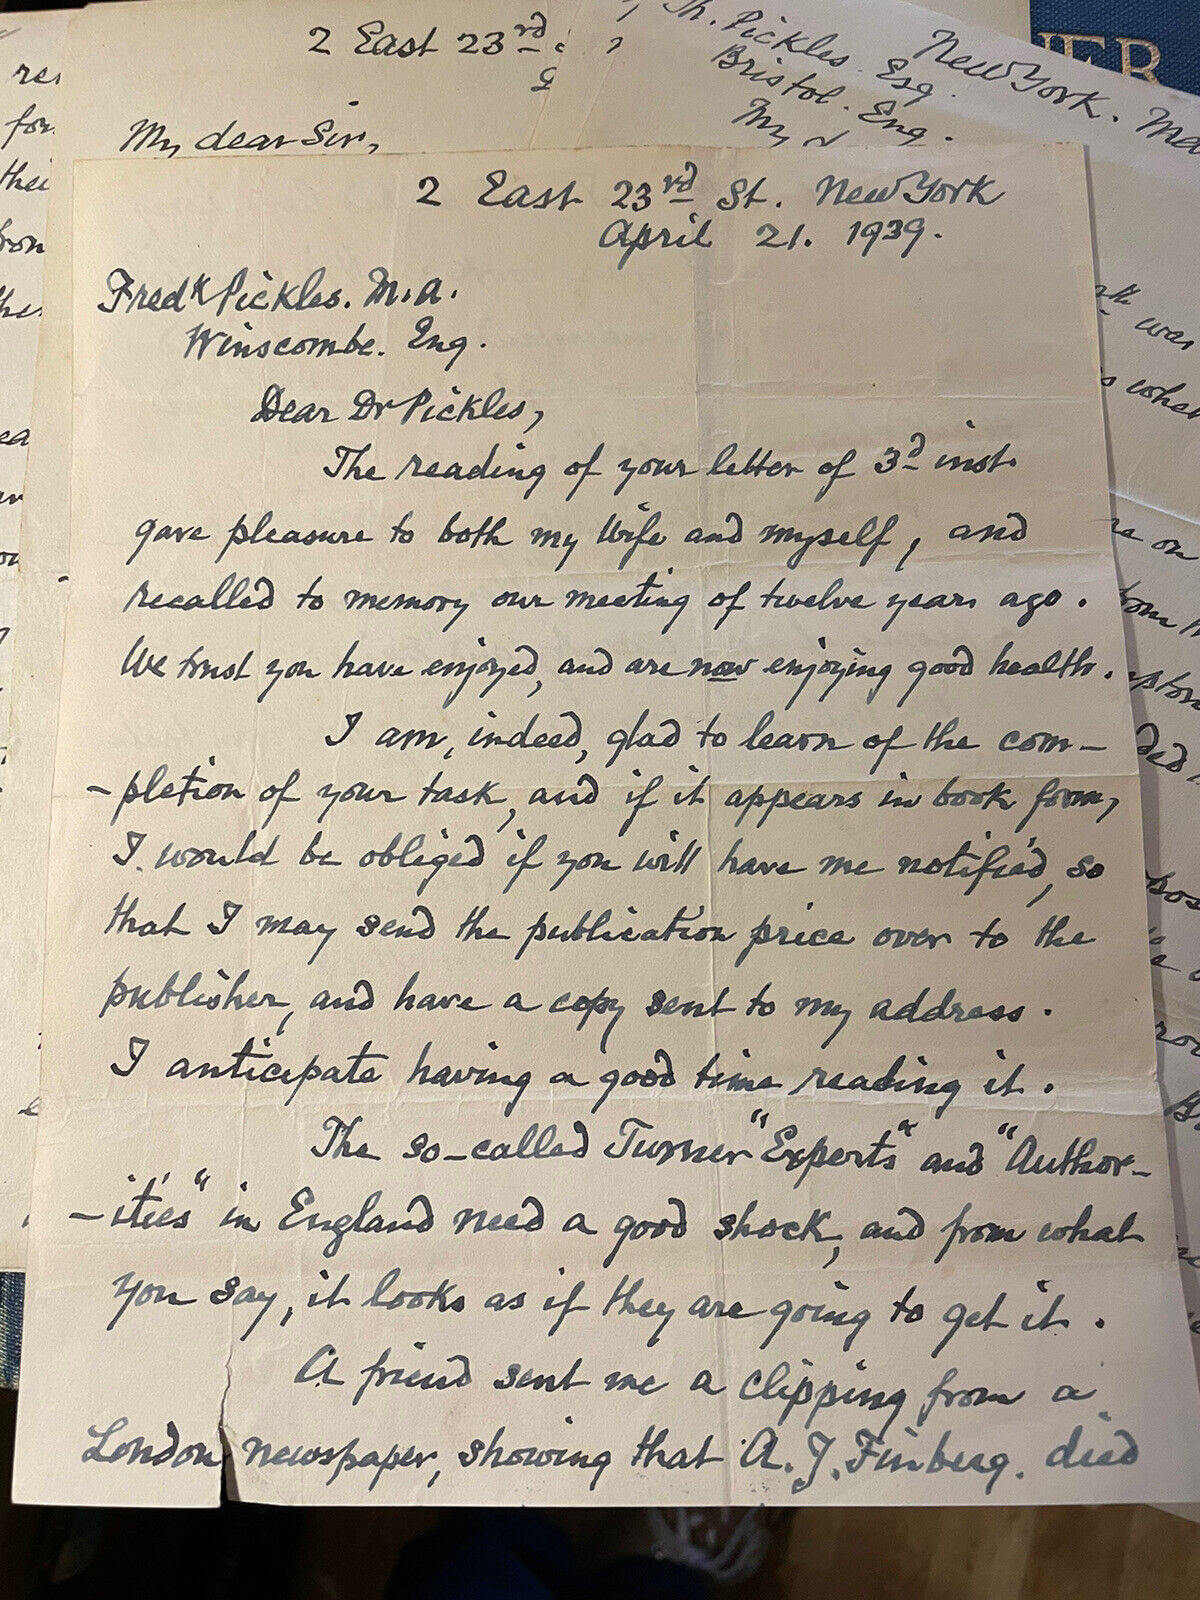 2 East 23rd
My dear Sir,
Th. Pickles. Esq.
Bristol. Eng.
My
New York.
ER
2 East 23rd St. New York
April 21. 1939.
Fredk Pickles. M.A.
Winscombe. Eng.
Dear Dr Pickles,
The reading of your letter of 3d inst.
gave pleasure to both my Wife and myself, and
recalled to memory our meeting of twelve years ago.
We trust you have enjoyed, and are now enjoying good health.
I am, indeed, glad to learn of the com-
-pletion of your task, and if it appears in book form,
I would be obliged if you will have me notified, so
that I may send the publication price over to the
publisher, and have a copy sent to my address.
I anticipate having a good time reading it.
The so-called Turner "Experts" and "Author-
-ities" in England need a good shock, and from what
you say, it looks as if they are going to get it.
A friend sent me a clipping from a
London newspaper, showing that A. J. Finberg. died
was
on